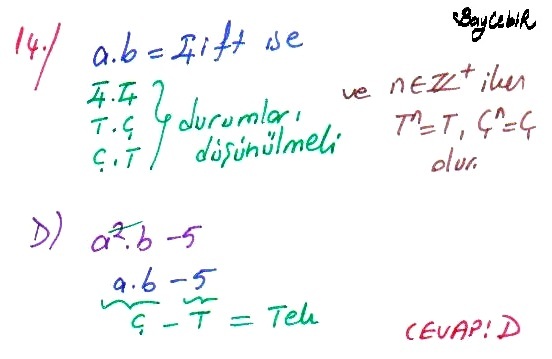 BayCebir
14.) a.b = Çift ise
Ç.Ç
T.Ç
Ç.T
durumları
düşünülmeli
ve n∈Z⁺ iken
Tⁿ=T, Çⁿ=Ç
dur.
D) a².b - 5
a.b - 5
Ç - T = Tek
CEVAP: D